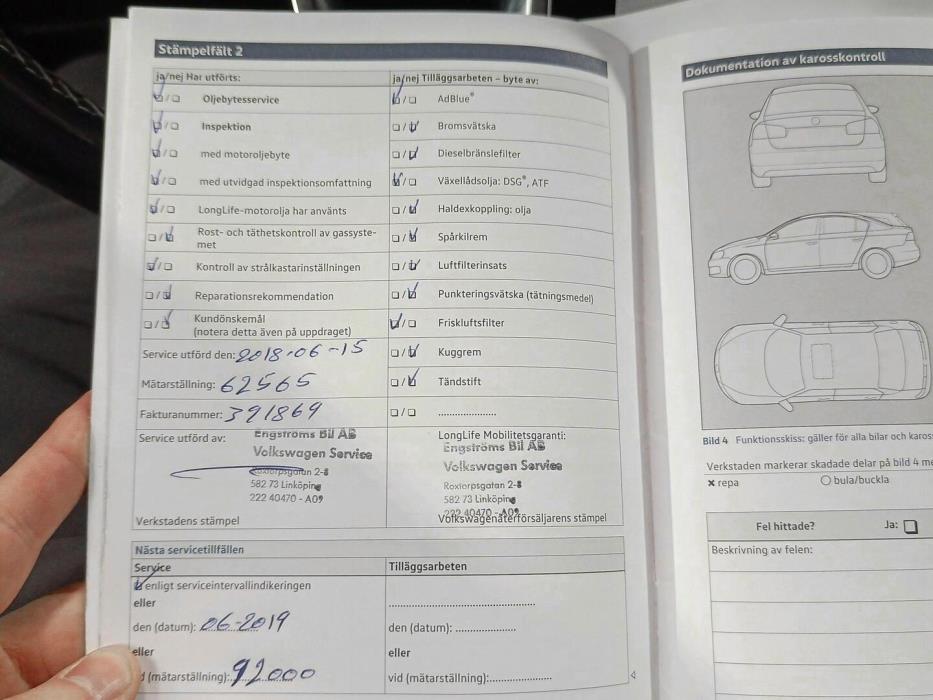 Stämpelfält 2
ja/nej Har utförts:
Oljebytesservice
Inspektion
med motoroljebyte
med utvidgad inspektionsomfattning
LongLife-motorolja har använts
Rost- och täthetskontroll av gassyste-
met
Kontroll av strålkastarinställningen
Reparationsrekommendation
Kundönskemål
(notera detta även på uppdraget)
Service utförd den: 2018-06-15
Mätarställning: 62565
Fakturanummer: 391869
Service utförd av:
Engströms Bil AB
Volkswagen Service
Roxtorpsgatan 2-8
582 73 Linköping
222 40470 - A09
Verkstadens stämpel
ja/nej Tilläggsarbeten – byte av:
AdBlue®
Bromsvätska
Dieselbränslefilter
Växellådsolja: DSG®, ATF
Haldexkoppling: olja
Spårkilrem
Luftfilterinsats
Punkteringsvätska (tätningsmedel)
Friskluftsfilter
Kuggrem
Tändstift
LongLife Mobilitetsgaranti:
Engströms Bil AB
Volkswagen Service
Roxtorpsgatan 2-8
582 73 Linköping
222 40470 - A09
Volkswagenåterförsäljarens stämpel
Nästa servicetillfällen
Service
enligt serviceintervallindikeringen
eller
den (datum): 06-2019
eller
d (mätarställning): 92000
Tilläggsarbeten
den (datum):
eller
vid (mätarställning):
Dokumentation av karosskontroll
Bild 4 Funktionsskiss: gäller för alla bilar och kaross
Verkstaden markerar skadade delar på bild 4 me
x repa
bula/buckla
Fel hittade?
Ja:
Beskrivning av felen: